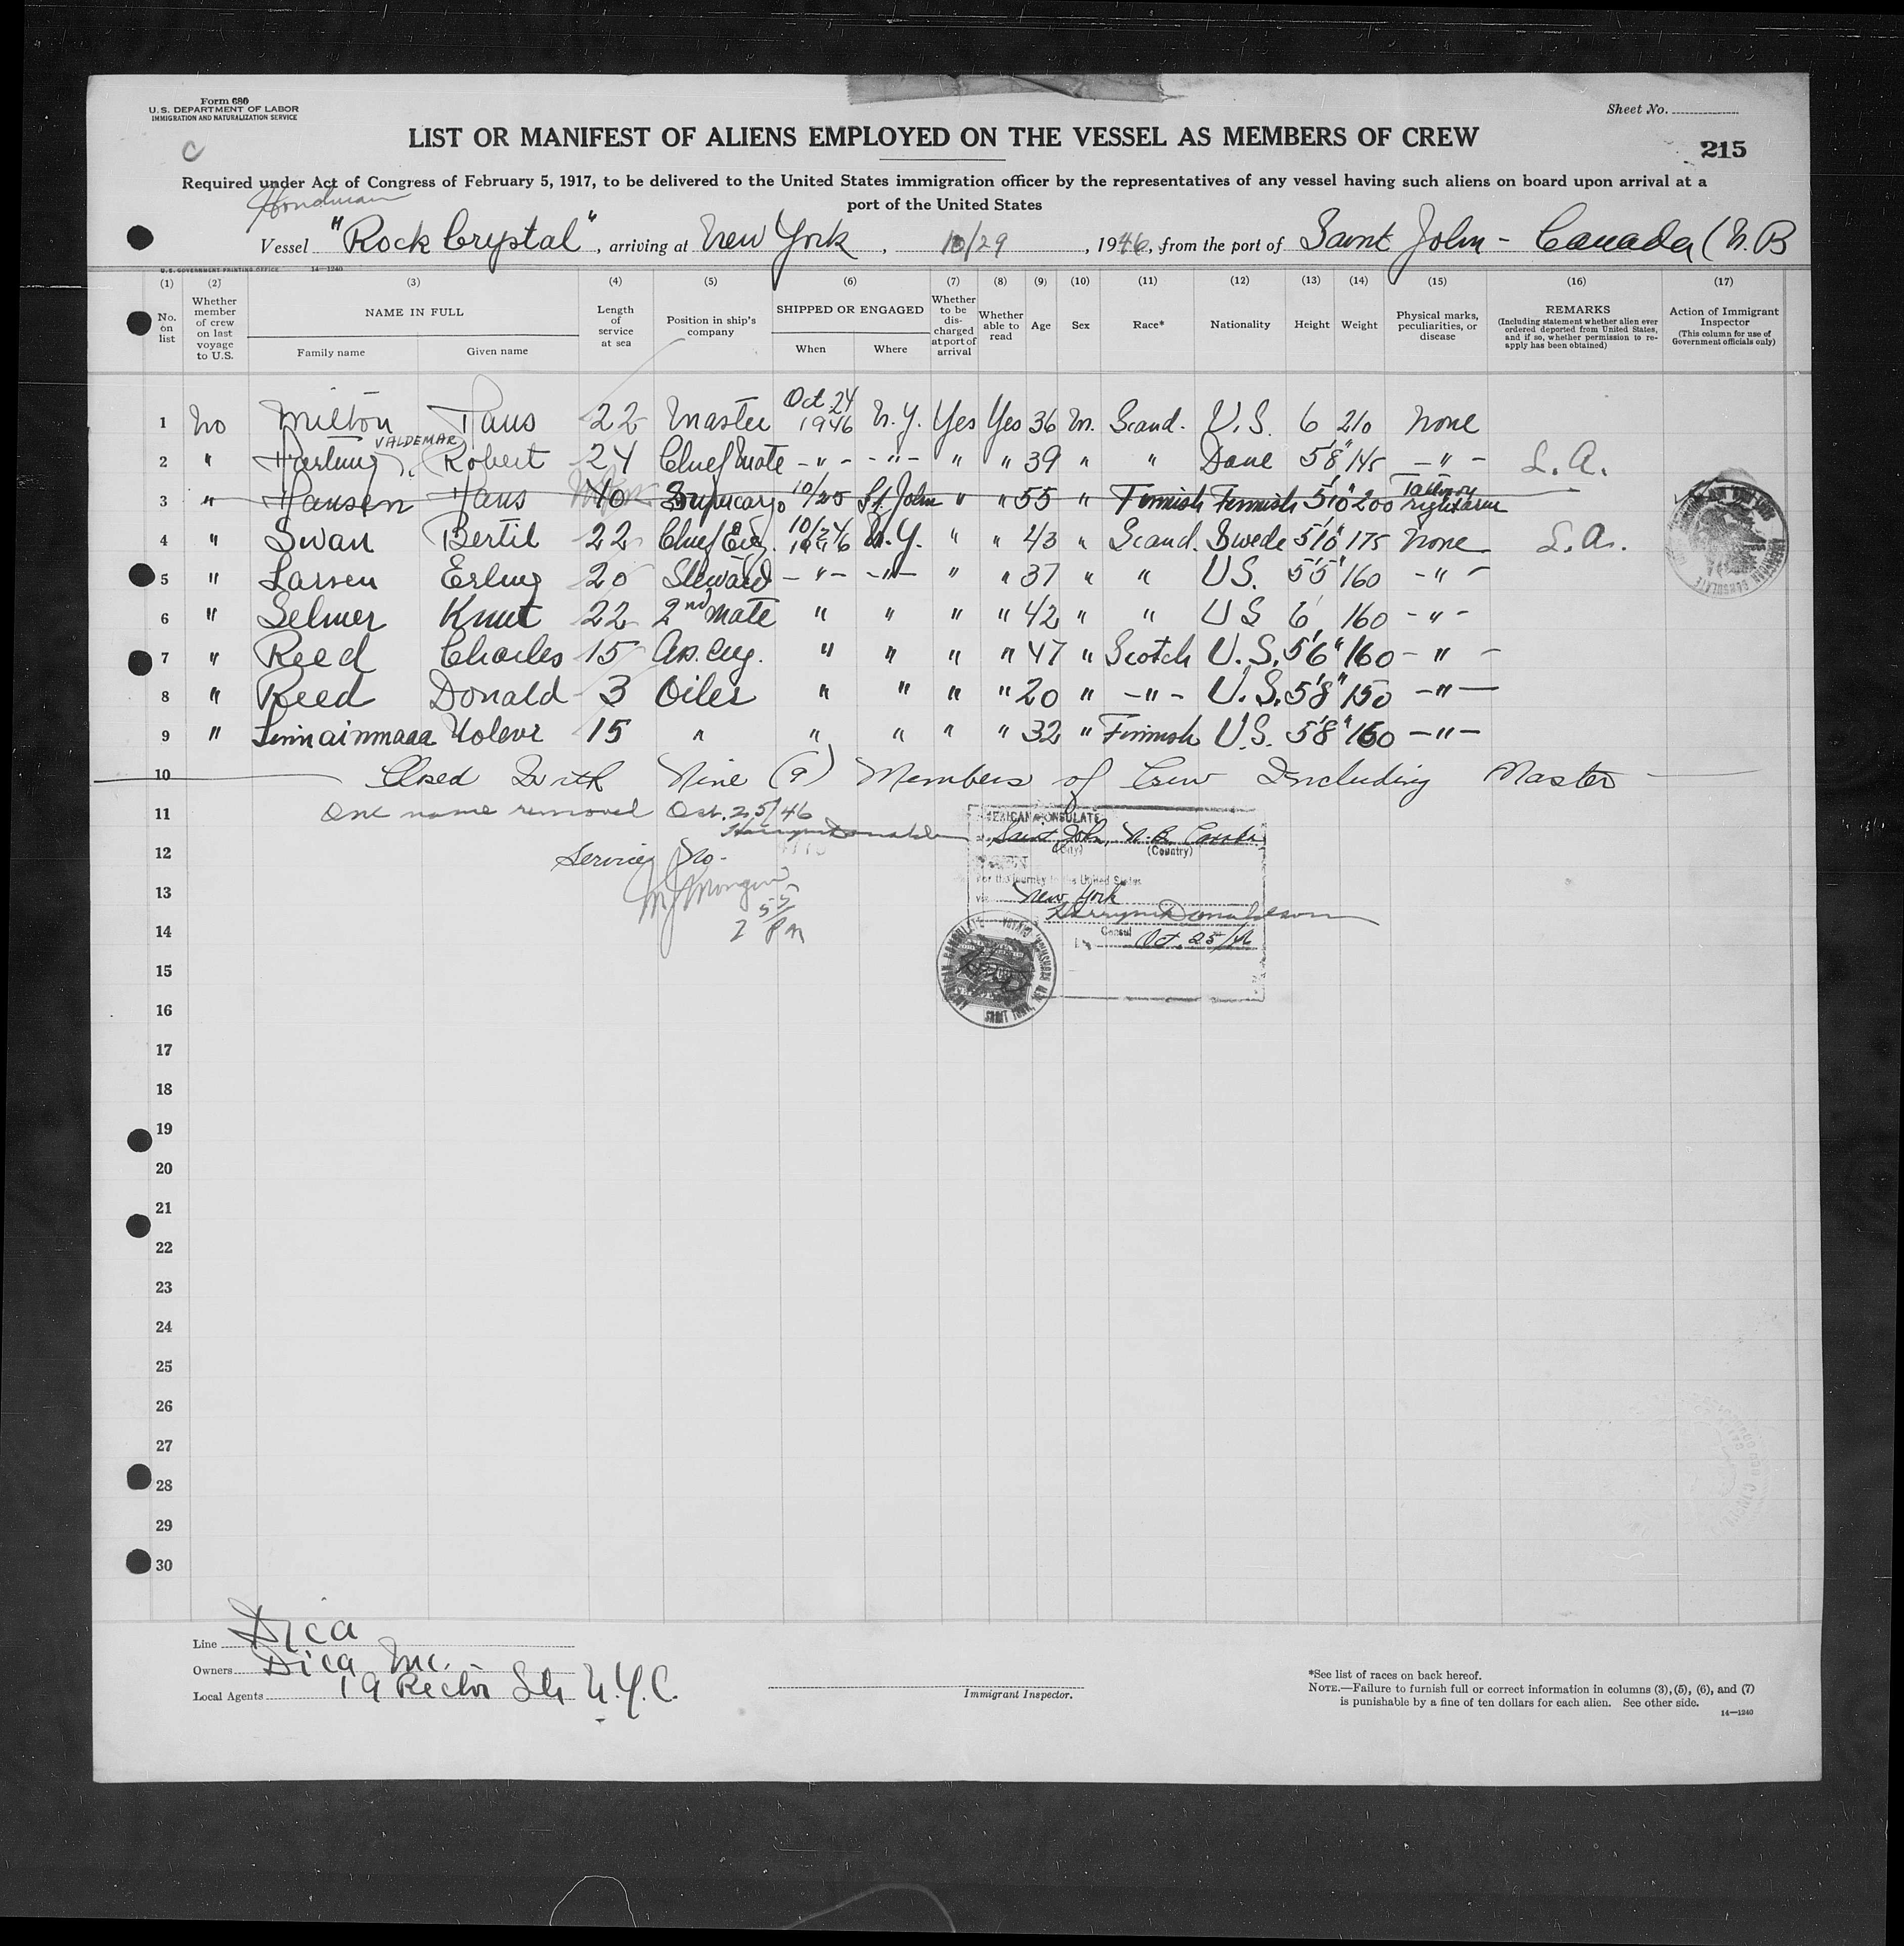 Form 680
U.S. DEPARTMENT OF LABOR
IMMIGRATION AND NATURALIZATION SERVICE
Sheet No.
LIST OR MANIFEST OF ALIENS EMPLOYED ON THE VESSEL AS MEMBERS OF CREW
C
215
Required under Act of Congress of February 5, 1917, to be delivered to the United States immigration officer by the representatives of any vessel having such aliens on board upon arrival at a
port of the United States
Honduran
Vessel "Rock Crystal", arriving at New York, 10/29, 1946, from the port of Saint John - Canada (N.B
U.S. GOVERNMENT PRINTING OFFICE 14—1240
(1) (2) (3) (4) (5) (6) (7) (8) (9) (10) (11) (12) (13) (14) (15) (16) (17)
No. on list
Whether member of crew on last voyage to U.S.
NAME IN FULL
Family name Given name
Length of service at sea
Position in ship's company
SHIPPED OR ENGAGED
When Where
Whether to be discharged at port of arrival
Whether able to read
Age
Sex
Race*
Nationality
Height
Weight
Physical marks, peculiarities, or disease
REMARKS
(Including statement whether alien ever ordered deported from United States, and if so, whether permission to reapply has been obtained)
Action of Immigrant Inspector
(This column for use of Government officials only)
1 No Milton Hans 22 Master Oct 24 1946 N.Y. Yes Yes 36 M. Scand. U.S. 6 210 None
VALDEMAR
2 " Robert 24 Chief Mate -"- -"- " " 39 " " Dane 5'8" 145 -"- L.A.
3 " Hansen Hans 40 Supucargo 10/25 St. John " " 55 " Finnish Finnish 5'10" 200 Tattoo right arm
4 " Swan Bertil 22 Chief Eng. 10/24 1946 N.Y. " " 43 " Scand. Swede 5'10" 175 None L.A.
5 " Larsen Erling 20 Steward -"- -"- " " 37 " " US. 5'5" 160 -"-
6 " Selmer Knut 22 2nd Mate " " " " 42 " " US 6' 160 -"-
7 " Reed Charles 15 As. Eng. " " " " 47 " Scotch U.S. 5'6" 160 -"-
8 " Reed Donald 3 Oiler " " " " 20 " -"- U.S. 5'8" 150 -"-
9 " 15 " " " " " 32 " Finnish U.S. 5'8" 160 -"-
10 Closed With Nine (9) Members of Crew Including Master
11 One name removed Oct. 25/46
12
Service No.
13
14
15
16
17
18
19
20
21
22
23
24
25
26
27
28
29
30
AMERICAN CONSULATE
Saint John, N.B. Canada
(City) (Country)
For the journey to the United States
via New York
Harry M Donaldson
Consul
Oct. 25/46
AMERICAN CONSULATE
2 PM
Line Dica
Owners Dica Inc.
Local Agents 19 Rector Str N.Y.C.
Immigrant Inspector.
*See list of races on back hereof.
NOTE.—Failure to furnish full or correct information in columns (3), (5), (6), and (7)
is punishable by a fine of ten dollars for each alien. See other side.
14—1240